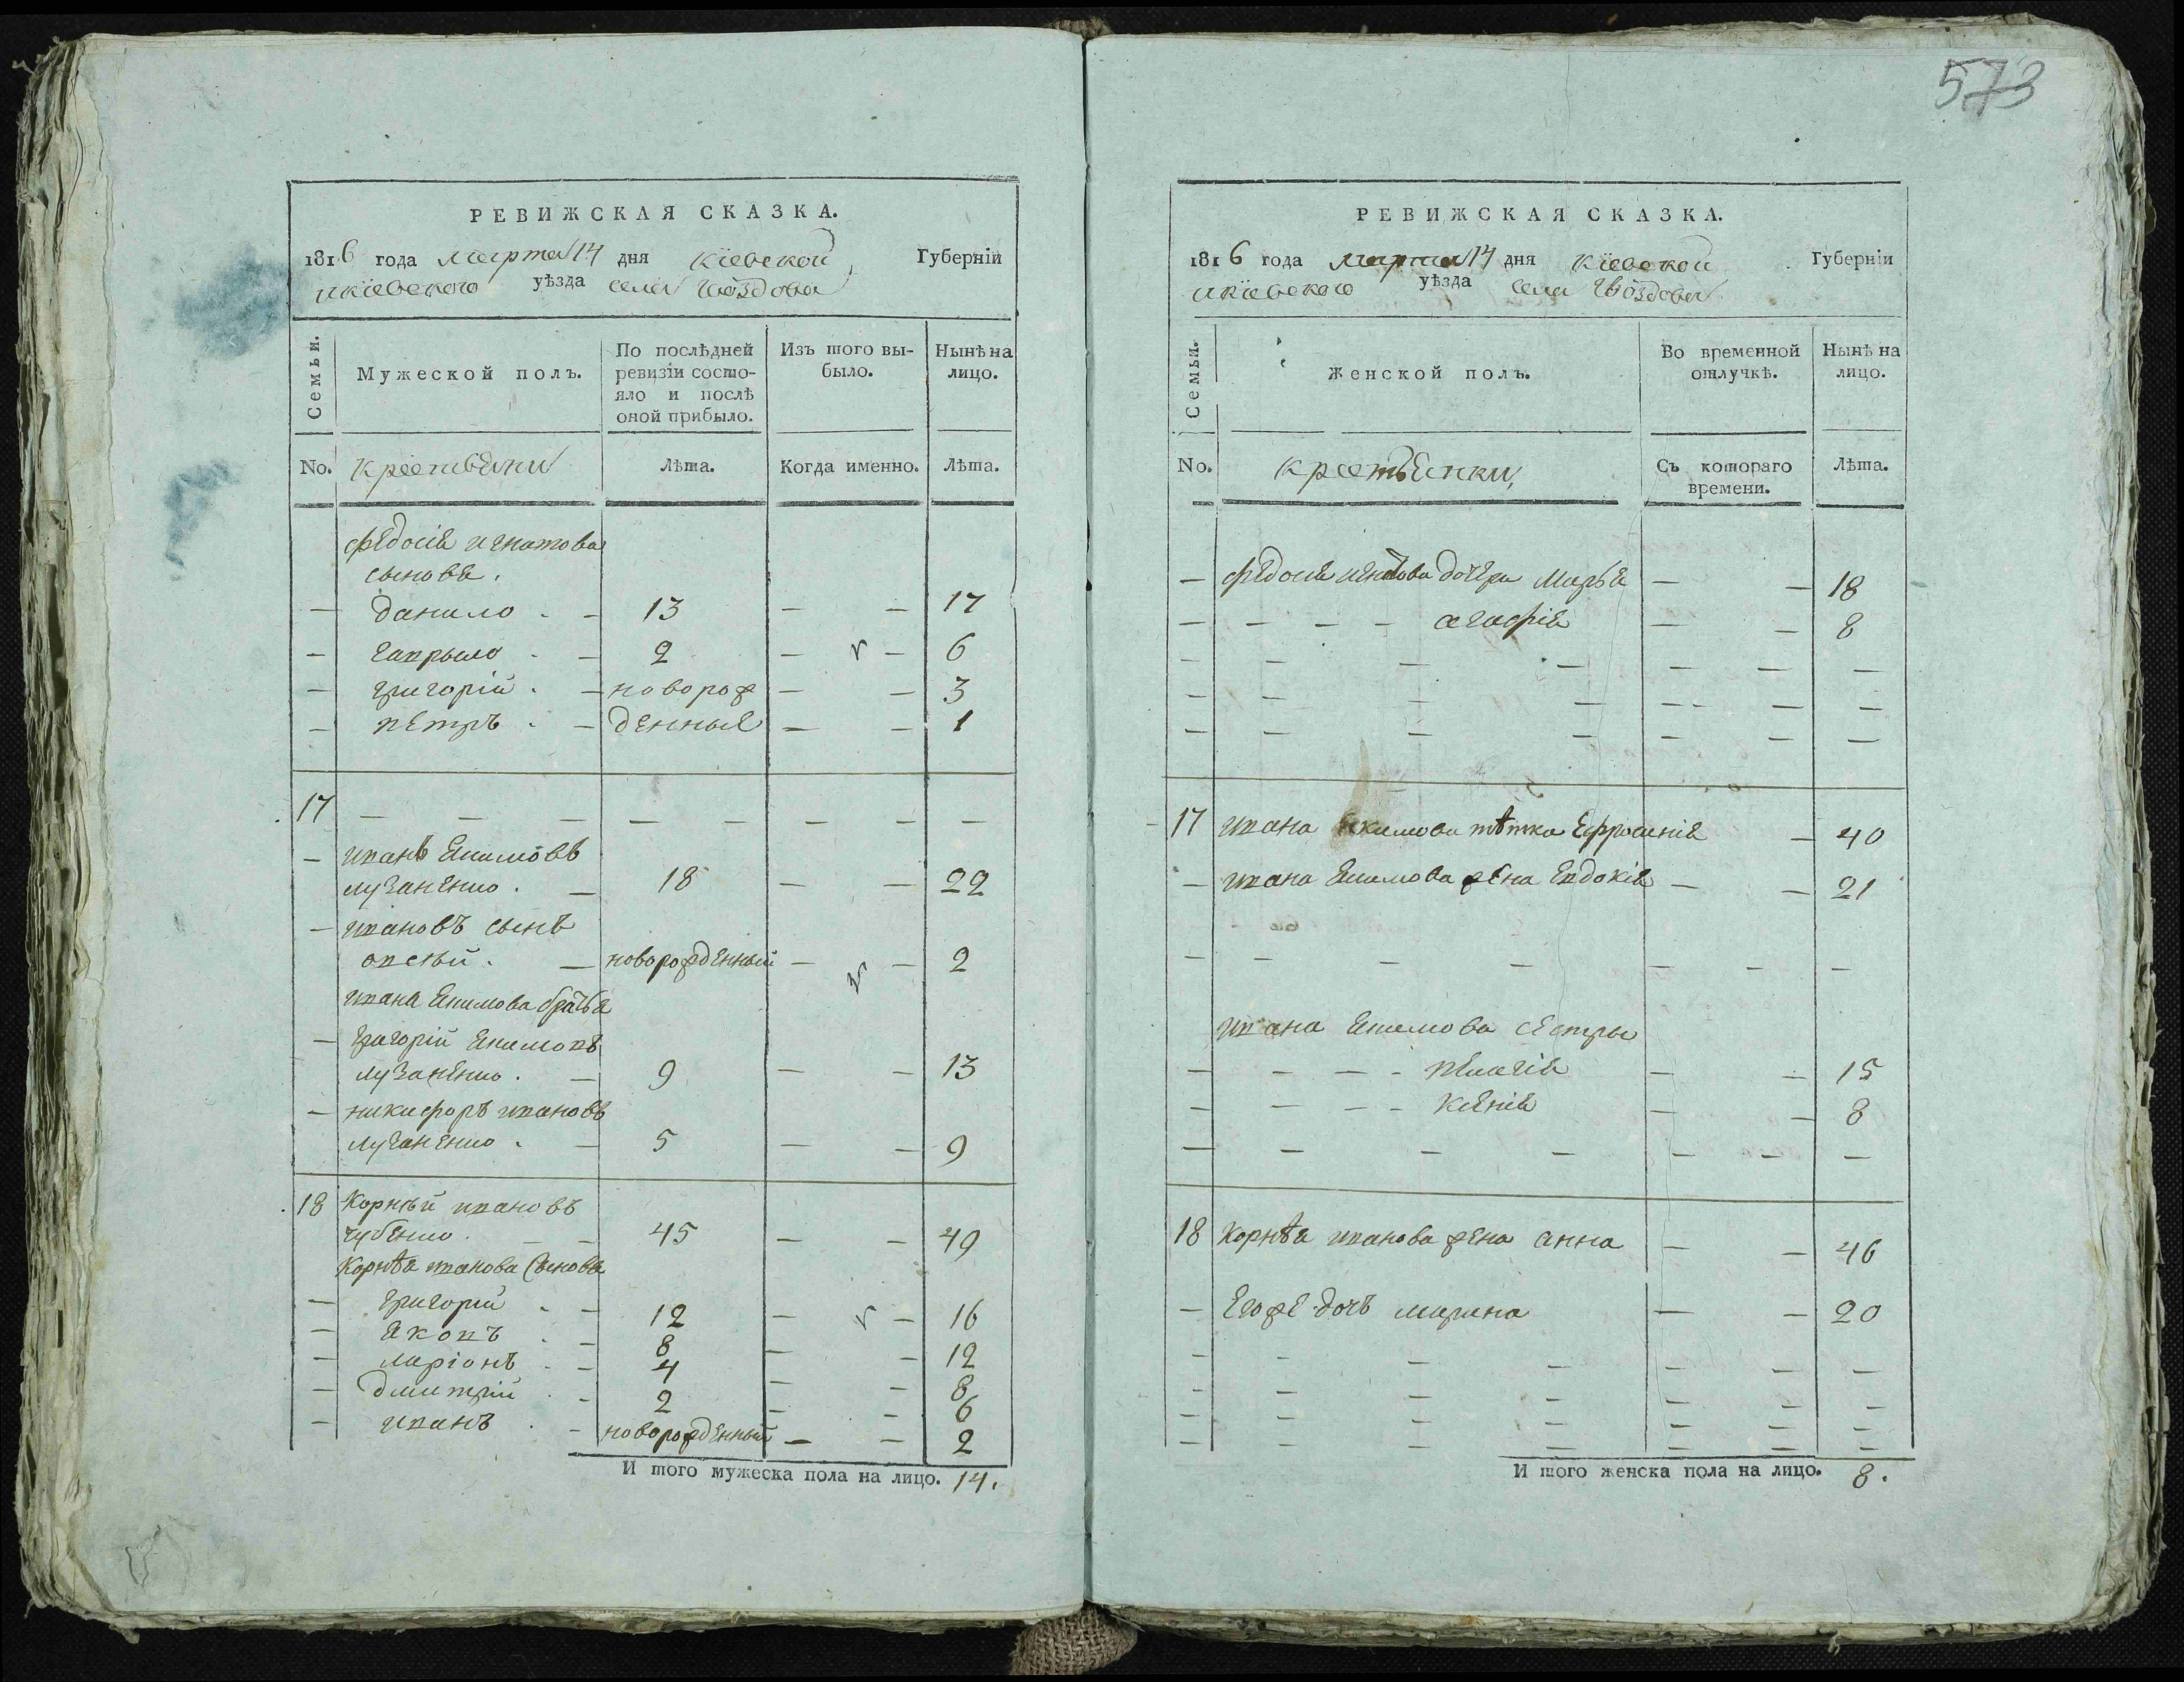 573
РЕВИЖСКАЯ СКАЗКА.
1816 года марта 14 дня Кіевской Губерніи
икіевского уѣзда села Гвоздова
Семьи.
Мужеской полъ.
По послѣдней ревизіи состо-
яло и послѣ
оной прибыло.
Изъ того вы-
было.
Нынѣ на
лицо.
No. Крестьяни Лѣта. Когда именно. Лѣта.
Федосія игнатова
сыновя.
— данило . — 13 — — 17
— гаврыло . — 2 — — 6
— григорій . — новорож — — 3
— петръ . — денныя — — 1
17 — — — — — — — —
— иванъ Екимовъ
луганенко . — 18 — — 22
— ивановъ сынъ
овсѣй . — новорожденный — — 2
ивана Екимова братья
— григорій Екимовъ
луганенко . — 9 — — 13
— никифоръ ивановъ
луганенко . — 5 — — 9
18 Корнѣй ивановъ
чубенко . — — 45 — — 49
Корнѣя иванова сыновя
— григорій . — 12 — — 16
— Яковъ . — 8 — — 12
— ларіонъ . — 4 — — 8
— дмитрій . — 2 — — 6
— иванъ . — новорожденный — — 2
И того мужеска пола на лицо. 14.
РЕВИЖСКАЯ СКАЗКА.
1816 года марта 14 дня Кіевской Губерніи
икіевского уѣзда села Гвоздова
Семьи.
Женской полъ.
Во временной
отлучкѣ.
Нынѣ на
лицо.
No. Крестьянки, Съ котораго
времени. Лѣта.
— Федосія игнатова дочери Марья — — 18
— — — — агафія — — 8
— — — — — — —
— — — — — — —
— — — — — — —
17 ивана Екимова тѣтка Ефросинія — 40
— ивана Екимова жена Евдокія — — 21
— — — — — — —
ивана Екимова сестры
— — — - пелагія — — 15
— — — - Ксенія — — 8
— — — — — — —
18 Корнѣя иванова жена анна — — 46
— Егоже дочь марина — — 20
— — — — — — —
— — — — — — —
— — — — — — —
— — — — — — —
И того женска пола на лицо. 8.